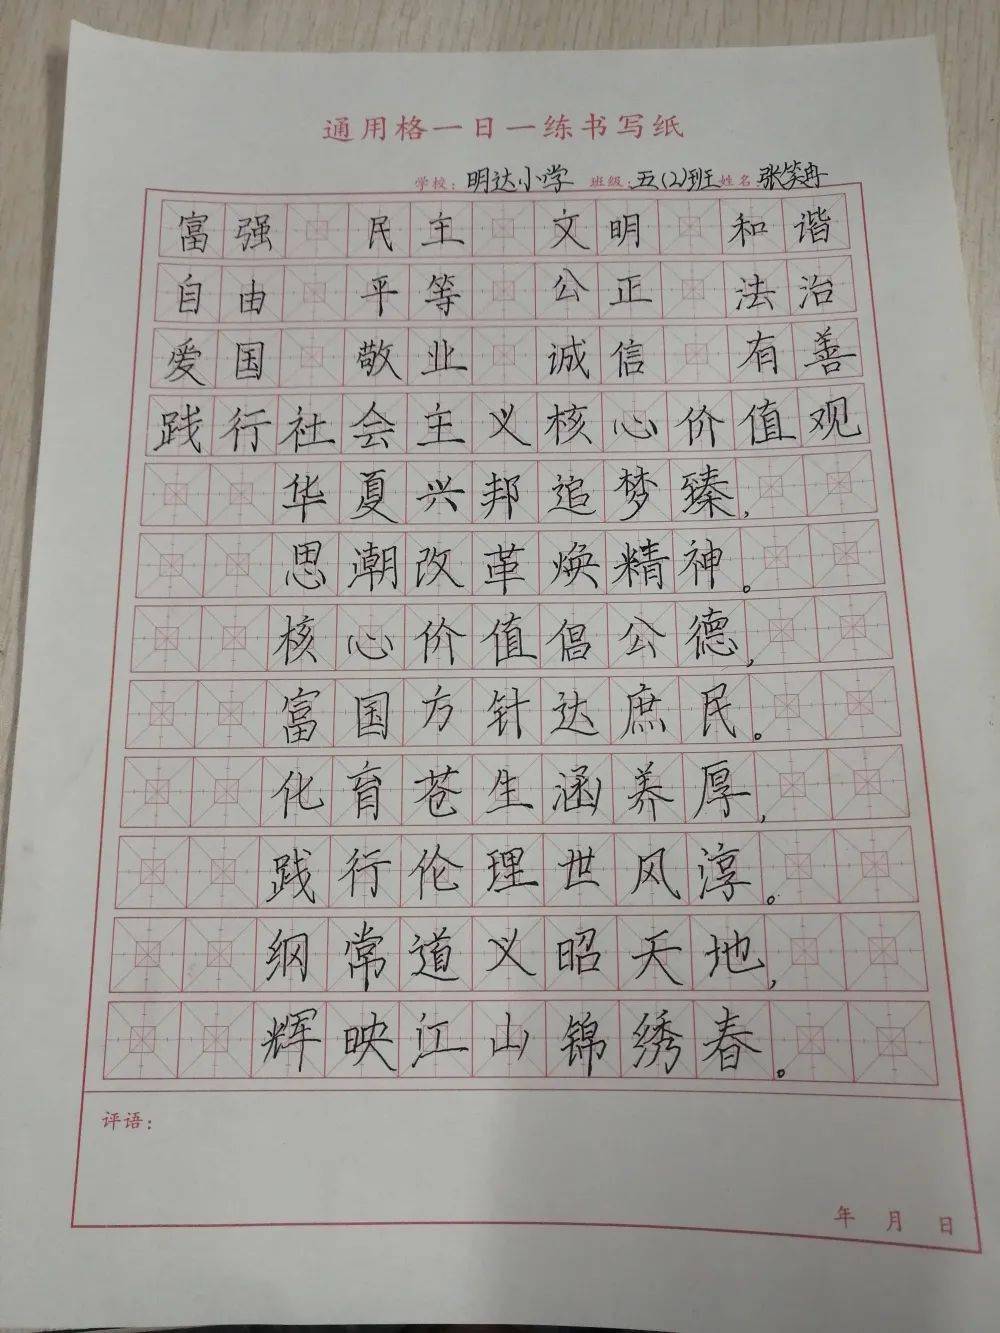 通用格一日一练书写纸
学校：明达小学 班级：五(2)班 姓名：张笑冉
富强 民主 文明 和谐
自由 平等 公正 法治
爱国 敬业 诚信 有善
践行社会主义核心价值观
华夏兴邦追梦臻，
思潮改革焕精神。
核心价值倡公德，
富国方针达庶民。
化育苍生涵养厚，
践行伦理世风淳。
纲常道义昭天地，
辉映江山锦绣春。
评语：
年 月 日